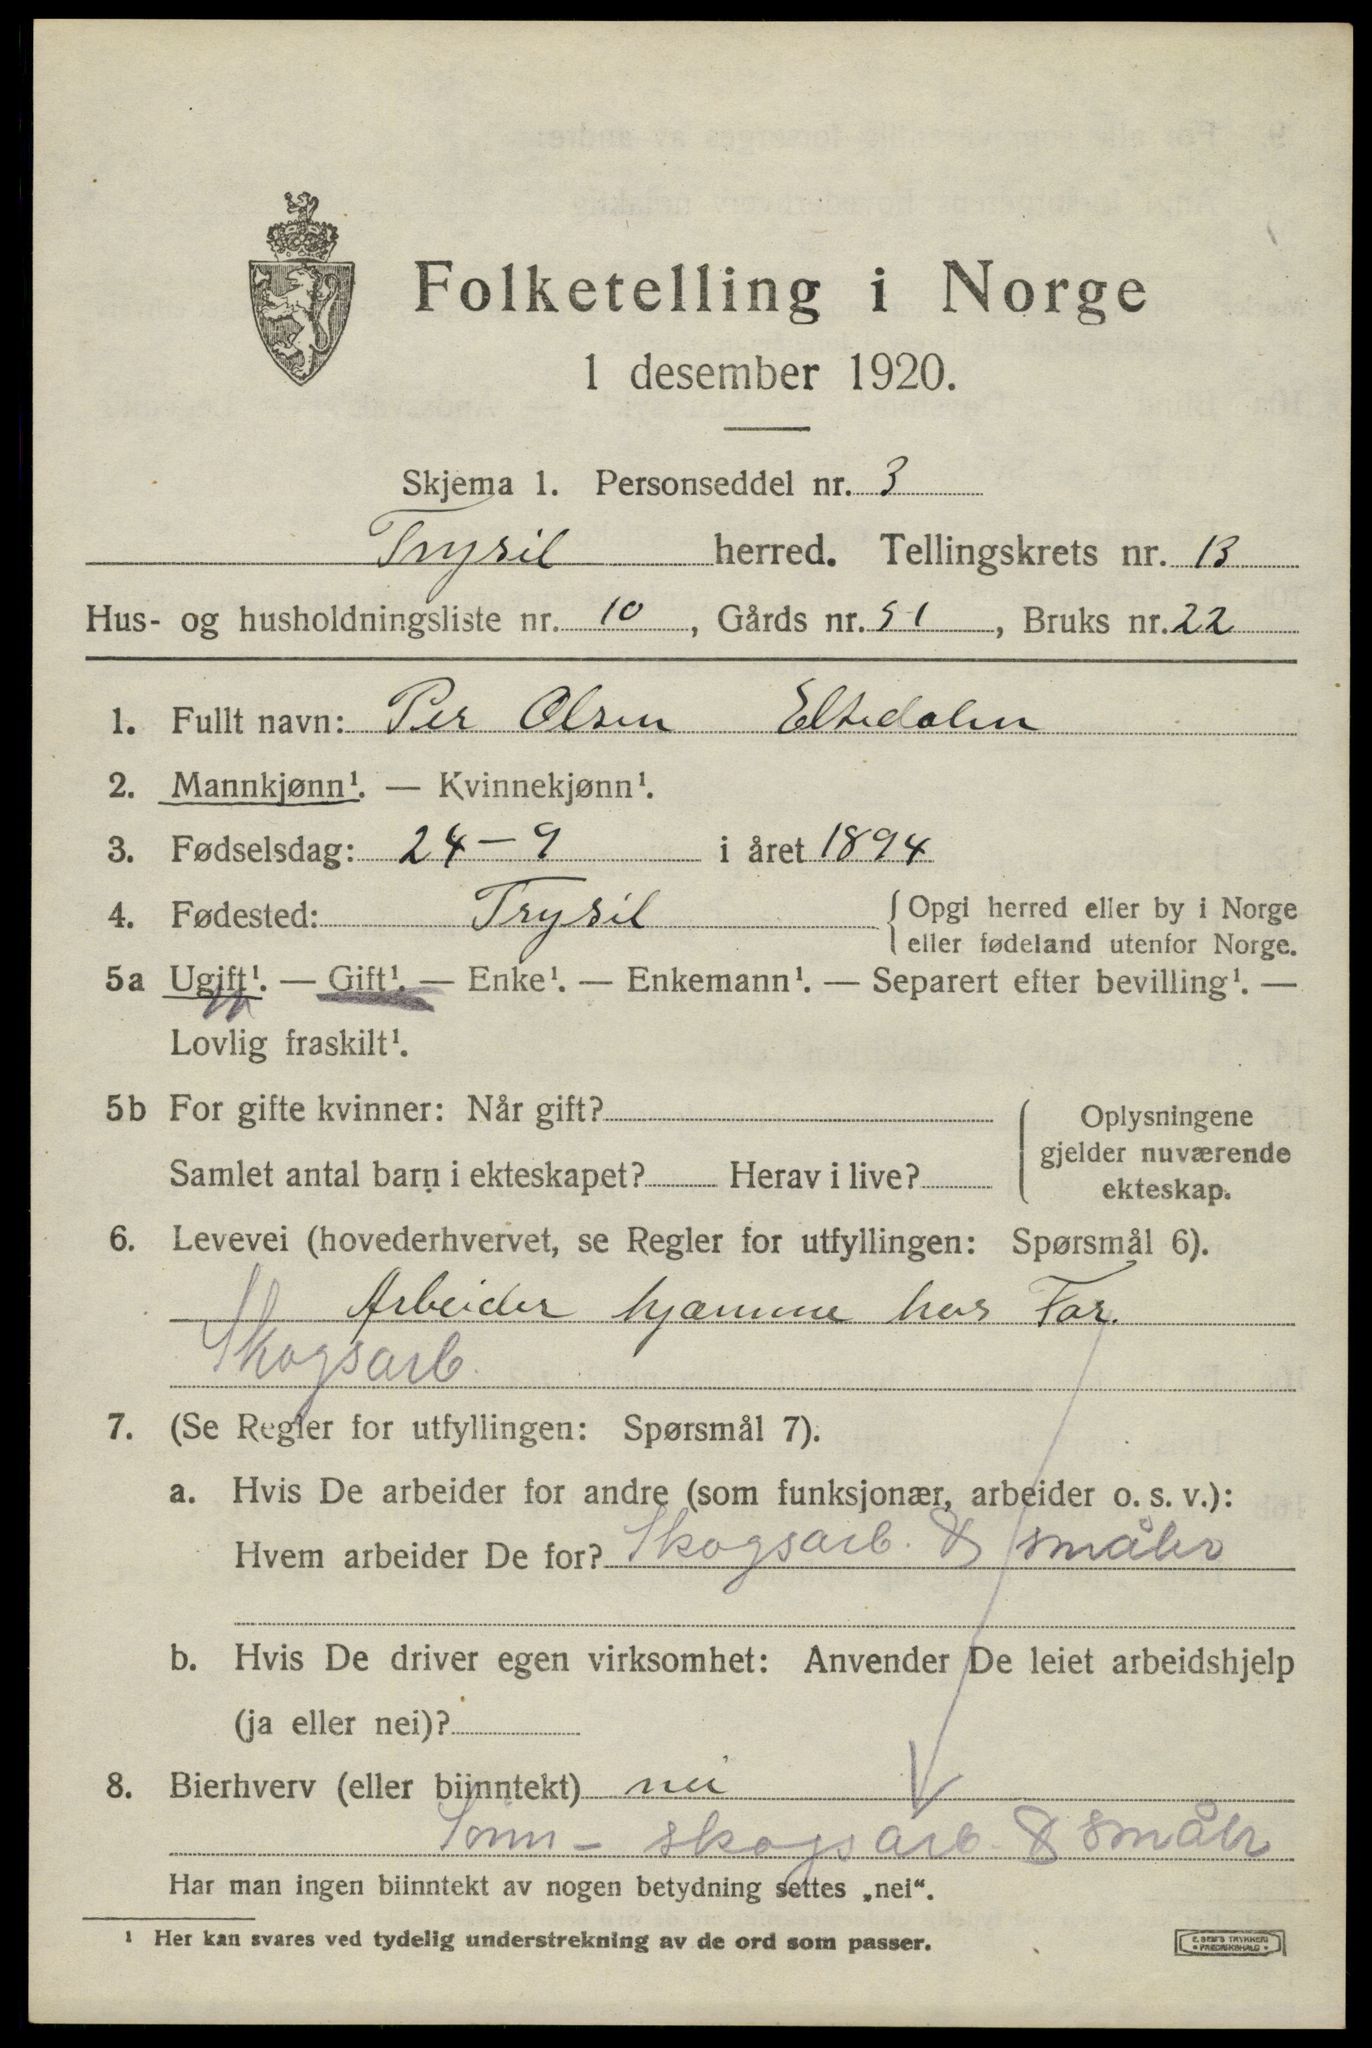 Folketelling i Norge
1 desember 1920.
Skjema 1. Personseddel nr. 3
Trysil herred. Tellingskrets nr. 13
Hus- og husholdningsliste nr. 10, Gårds nr. 51, Bruks nr. 22
1. Fullt navn: Per Olsen Eltedalen
2. Mannkjønn¹. — Kvinnekjønn¹.
3. Fødselsdag: 24-9 i året 1894
4. Fødested: Trysil { Opgi herred eller by i Norge
eller fødeland utenfor Norge.
5a Ugift¹. — Gift¹. — Enke¹. — Enkemann¹. — Separert efter bevilling¹. —
Lovlig fraskilt¹.
5b For gifte kvinner: Når gift?
Samlet antal barn i ekteskapet? Herav i live?
Oplysningene
gjelder nuværende
ekteskap.
6. Levevei (hovederhvervet, se Regler for utfyllingen: Spørsmål 6).
Arbeider hjemme hos Far.
Skogsarb.
7. (Se Regler for utfyllingen: Spørsmål 7).
a. Hvis De arbeider for andre (som funksjonær, arbeider o. s. v.):
Hvem arbeider De for? Skogsarb. & småbr
b. Hvis De driver egen virksomhet: Anvender De leiet arbeidshjelp
(ja eller nei)?
8. Bierhverv (eller biinntekt) nei
Sønn - skogsarb. & småbr
Har man ingen biinntekt av nogen betydning settes „nei“.
¹ Her kan svares ved tydelig understrekning av de ord som passer.
E. SEM'S TRYKKERI
FREDRIKSHALD